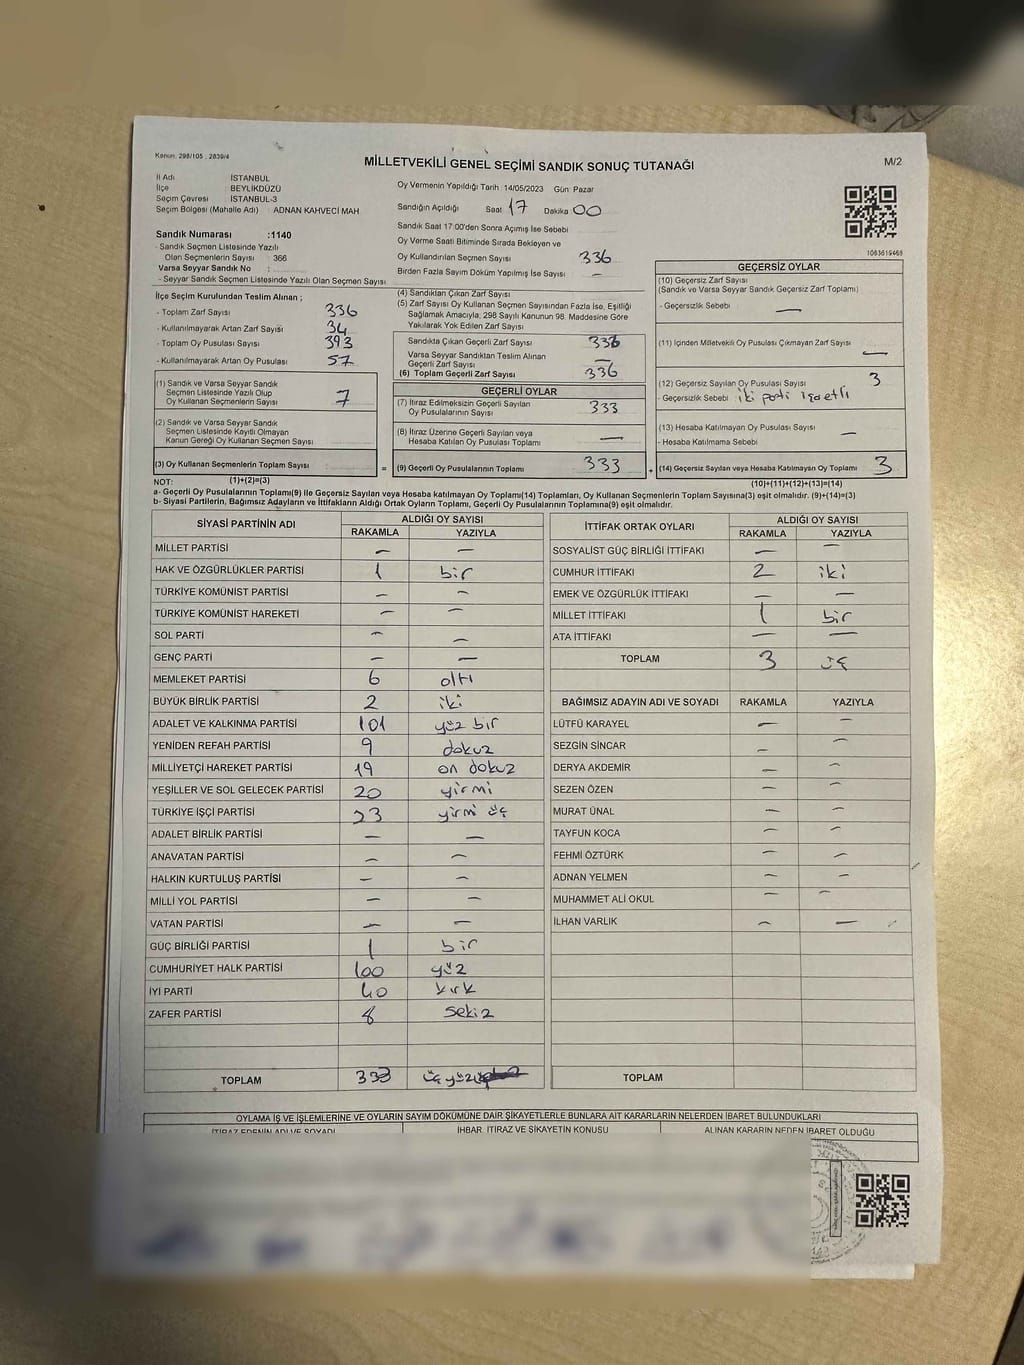 Kanun: 298/105 , 2839/4
MİLLETVEKİLİ GENEL SEÇİMİ SANDIK SONUÇ TUTANAĞI
M/2
İl Adı İSTANBUL
İlçe BEYLİKDÜZÜ
Seçim Çevresi İSTANBUL-3
Seçim Bölgesi (Mahalle Adı) : ADNAN KAHVECİ MAH
Sandık Numarası :1140
- Sandık Seçmen Listesinde Yazılı
Olan Seçmenlerin Sayısı : 366
Varsa Seyyar Sandık No :
- Seyyar Sandık Seçmen Listesinde Yazılı Olan Seçmen Sayısı
Oy Vermenin Yapıldığı Tarih : 14/05/2023 Gün: Pazar
Sandığın Açıldığı Saat 17 Dakika 00
Sandık Saat 17:00'den Sonra Açılmış İse Sebebi
Oy Verme Saati Bitiminde Sırada Bekleyen ve
Oy Kullandırılan Seçmen Sayısı 336
Birden Fazla Sayım Döküm Yapılmış İse Sayısı —
1083619468
İlçe Seçim Kurulundan Teslim Alınan ;
- Toplam Zarf Sayısı 336
- Kullanılmayarak Artan Zarf Sayısı 34
- Toplam Oy Pusulası Sayısı 393
- Kullanılmayarak Artan Oy Pusulası 57
(1) Sandık ve Varsa Seyyar Sandık
Seçmen Listesinde Yazılı Olup
Oy Kullanan Seçmenlerin Sayısı 7
(2) Sandık ve Varsa Seyyar Sandık
Seçmen Listesinde Kayıtlı Olmayan
Kanun Gereği Oy Kullanan Seçmen Sayısı
(3) Oy Kullanan Seçmenlerin Toplam Sayısı
(4) Sandıktan Çıkan Zarf Sayısı
(5) Zarf Sayısı Oy Kullanan Seçmen Sayısından Fazla İse, Eşitliği
Sağlamak Amacıyla; 298 Sayılı Kanunun 98. Maddesine Göre
Yakılarak Yok Edilen Zarf Sayısı
Sandıkta Çıkan Geçerli Zarf Sayısı 336
Varsa Seyyar Sandıktan Teslim Alınan
Geçerli Zarf Sayısı —
(6) Toplam Geçerli Zarf Sayısı 336
GEÇERLİ OYLAR
(7) İtiraz Edilmeksizin Geçerli Sayılan
Oy Pusulalarının Sayısı 333
(8) İtiraz Üzerine Geçerli Sayılan veya
Hesaba Katılan Oy Pusulası Toplamı —
= (9) Geçerli Oy Pusulalarının Toplamı 333
GEÇERSİZ OYLAR
(10) Geçersiz Zarf Sayısı
(Sandık ve Varsa Seyyar Sandık Geçersiz Zarf Toplamı)
- Geçersizlik Sebebi —
(11) İçinden Milletvekili Oy Pusulası Çıkmayan Zarf Sayısı —
(12) Geçersiz Sayılan Oy Pusulası Sayısı 3
- Geçersizlik Sebebi iki parti işaretli
(13) Hesaba Katılmayan Oy Pusulası Sayısı —
- Hesaba Katılmama Sebebi
+ (14) Geçersiz Sayılan veya Hesaba Katılmayan Oy Toplamı 3
NOT: (1)+(2)=(3) (10)+(11)+(12)+(13)=(14)
a- Geçerli Oy Pusulalarının Toplamı(9) ile Geçersiz Sayılan veya Hesaba katılmayan Oy Toplamı(14) Toplamları, Oy Kullanan Seçmenlerin Toplam Sayısına(3) eşit olmalıdır. (9)+(14)=(3)
b- Siyasi Partilerin, Bağımsız Adayların ve İttifakların Aldığı Ortak Oyların Toplamı, Geçerli Oy Pusulalarının Toplamına(9) eşit olmalıdır.
SİYASİ PARTİNİN ADI ALDIĞI OY SAYISI
RAKAMLA YAZIYLA
MİLLET PARTİSİ — —
HAK VE ÖZGÜRLÜKLER PARTİSİ 1 bir
TÜRKİYE KOMÜNİST PARTİSİ — —
TÜRKİYE KOMÜNİST HAREKETİ — —
SOL PARTİ — —
GENÇ PARTİ — —
MEMLEKET PARTİSİ 6 altı
BÜYÜK BİRLİK PARTİSİ 2 iki
ADALET VE KALKINMA PARTİSİ 101 yüz bir
YENİDEN REFAH PARTİSİ 9 dokuz
MİLLİYETÇİ HAREKET PARTİSİ 19 on dokuz
YEŞİLLER VE SOL GELECEK PARTİSİ 20 yirmi
TÜRKİYE İŞÇİ PARTİSİ 23 yirmi üç
ADALET BİRLİK PARTİSİ — —
ANAVATAN PARTİSİ — —
HALKIN KURTULUŞ PARTİSİ — —
MİLLİ YOL PARTİSİ — —
VATAN PARTİSİ — —
GÜÇ BİRLİĞİ PARTİSİ 1 bir
CUMHURİYET HALK PARTİSİ 100 yüz
İYİ PARTİ 40 kırk
ZAFER PARTİSİ 8 sekiz
TOPLAM 333 üç yüz
İTTİFAK ORTAK OYLARI ALDIĞI OY SAYISI
RAKAMLA YAZIYLA
SOSYALİST GÜÇ BİRLİĞİ İTTİFAKI — —
CUMHUR İTTİFAKI 2 iki
EMEK VE ÖZGÜRLÜK İTTİFAKI — —
MİLLET İTTİFAKI 1 bir
ATA İTTİFAKI — —
TOPLAM 3 üç
BAĞIMSIZ ADAYIN ADI VE SOYADI RAKAMLA YAZIYLA
LÜTFÜ KARAYEL — —
SEZGİN SİNCAR — —
DERYA AKDEMİR — —
SEZEN ÖZEN — —
MURAT ÜNAL — —
TAYFUN KOCA — —
FEHMİ ÖZTÜRK — —
ADNAN YELMEN — —
MUHAMMET ALİ OKUL — —
İLHAN VARLIK — —
TOPLAM
OYLAMA İŞ VE İŞLEMLERİNE VE OYLARIN SAYIM DÖKÜMÜNE DAİR ŞİKAYETLERLE BUNLARA AİT KARARLARIN NELERDEN İBARET BULUNDUKLARI
İTİRAZ EDENİN ADI VE SOYADI İHBAR, İTİRAZ VE ŞİKAYETİN KONUSU ALINAN KARARIN NEDEN İBARET OLDUĞU